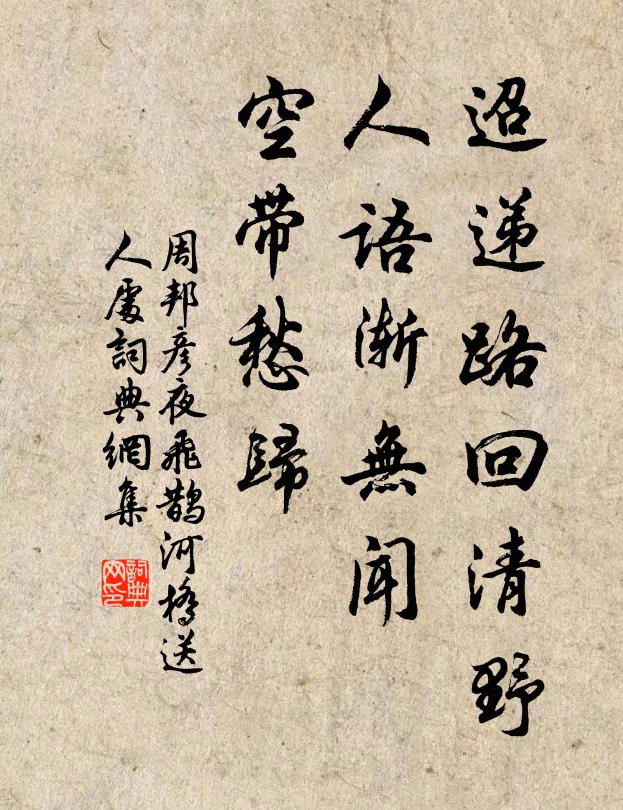 迢递路回清野
人语渐無闻
空带愁歸
周邦彦夜飛鹊河橋送
人處詞典網集
詞典网印